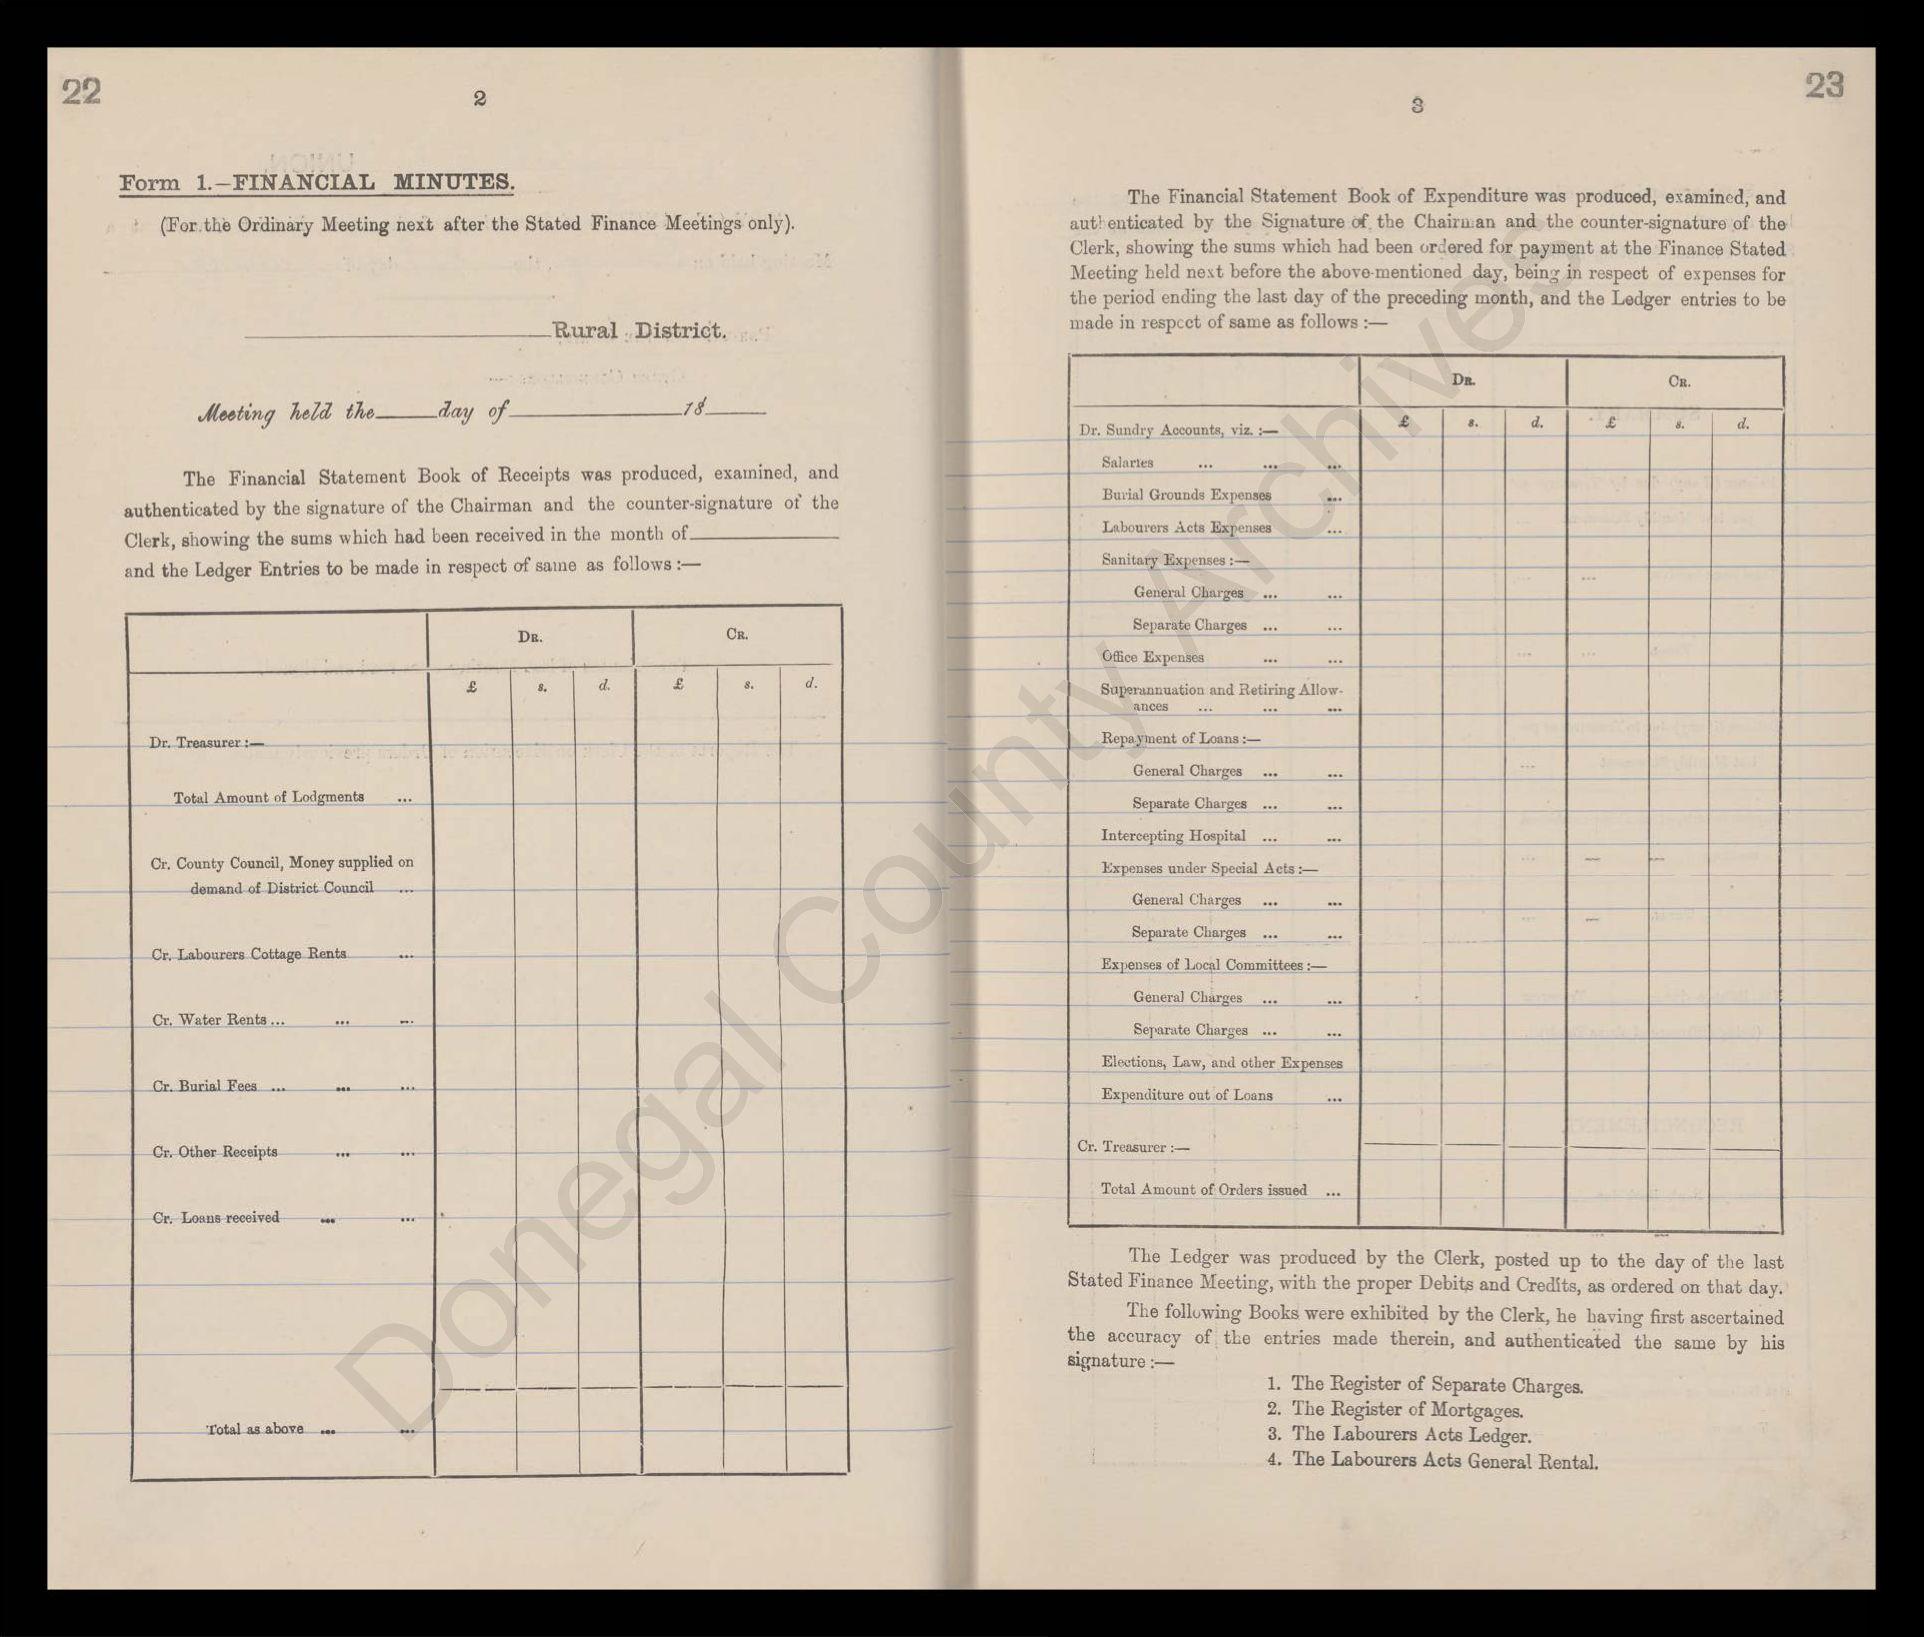 22
2
Form 1.—FINANCIAL MINUTES.
(For the Ordinary Meeting next after the Stated Finance Meetings only).
Rural District.
Meeting held the day of 18
The Financial Statement Book of Receipts was produced, examined, and
authenticated by the signature of the Chairman and the counter-signature of the
Clerk, showing the sums which had been received in the month of
and the Ledger Entries to be made in respect of same as follows :—
DR. CR.
£ s. d. £ s. d.
Dr. Treasurer :—
Total Amount of Lodgments ...
Cr. County Council, Money supplied on
demand of District Council ...
Cr. Labourers Cottage Rents ...
Cr. Water Rents ... ... ...
Cr. Burial Fees ... ... ...
Cr. Other Receipts ... ...
Cr. Loans received ... ...
Total as above ... ...
23
3
The Financial Statement Book of Expenditure was produced, examined, and
authenticated by the Signature of the Chairman and the counter-signature of the
Clerk, showing the sums which had been ordered for payment at the Finance Stated
Meeting held next before the above-mentioned day, being in respect of expenses for
the period ending the last day of the preceding month, and the Ledger entries to be
made in respect of same as follows :—
DR. CR.
£ s. d. £ s. d.
Dr. Sundry Accounts, viz. :—
Salaries ... ... ...
Burial Grounds Expenses ...
Labourers Acts Expenses ...
Sanitary Expenses :—
General Charges ... ...
Separate Charges ... ...
Office Expenses ... ...
Superannuation and Retiring Allow-
ances ... ... ...
Repayment of Loans :—
General Charges ... ...
Separate Charges ... ...
Intercepting Hospital ... ...
Expenses under Special Acts :—
General Charges ... ...
Separate Charges ... ...
Expenses of Local Committees :—
General Charges ... ...
Separate Charges ... ...
Elections, Law, and other Expenses
Expenditure out of Loans ...
Cr. Treasurer :—
Total Amount of Orders issued ...
The Ledger was produced by the Clerk, posted up to the day of the last
Stated Finance Meeting, with the proper Debits and Credits, as ordered on that day.
The following Books were exhibited by the Clerk, he having first ascertained
the accuracy of the entries made therein, and authenticated the same by his
signature :—
1. The Register of Separate Charges.
2. The Register of Mortgages.
3. The Labourers Acts Ledger.
4. The Labourers Acts General Rental.
Donegal County Archives